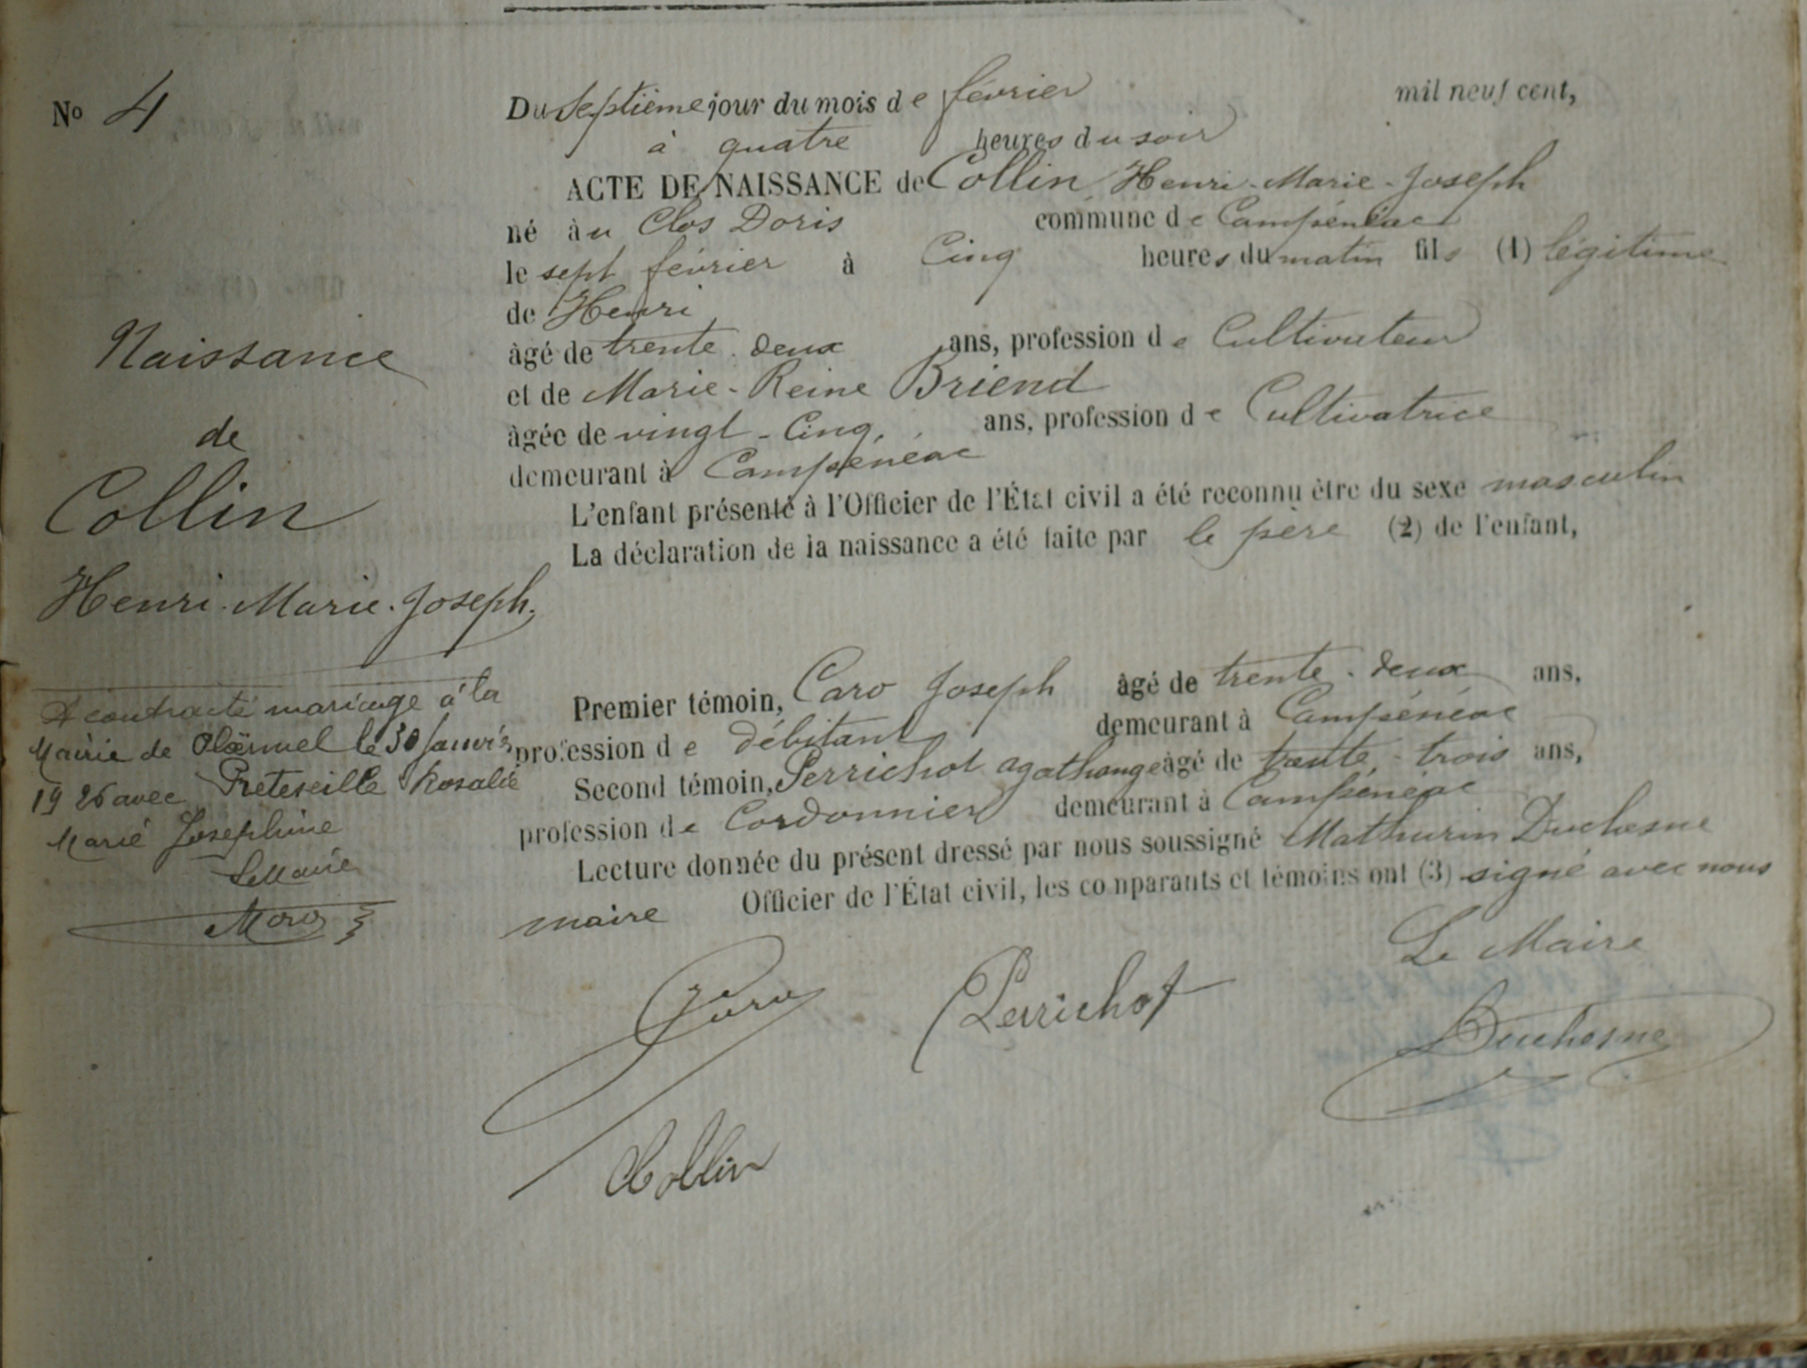 No 4
Du septième jour du mois de février mil neuf cent,
à quatre heures du soir
ACTE DE NAISSANCE de Collin Henri-Marie-Joseph
né àu Clos Doris commune de Campénéac
le sept février à Cinq heures du matin fils (1) légitime
de Henri
âgé de trente-deux ans, profession de Cultivateur
et de Marie-Reine Briend
âgée de vingt-Cinq, ans, profession de Cultivatrice
demeurant à Campénéac
L'enfant présenté à l'Officier de l'État civil a été reconnu être du sexe masculin
La déclaration de la naissance a été faite par le père (2) de l'enfant,
Naissance
de
Collin
Henri-Marie-Joseph,
A contracté mariage à la
Mairie de Ploërmel le 30 Janvier
1926 avec Preteseille Rosalie
Marie Josephine
Le Maire
Premier témoin, Caro Joseph âgé de trente-deux ans,
profession de débitant demeurant à Campénéac
Second témoin, Perrichot agathange âgé de trente-trois ans,
profession de Cordonnier demeurant à Campénéac
Lecture donnée du présent dressé par nous soussigné Mathurin Duchesne
maire Officier de l'État civil, les comparants et témoins ont (3) signé avec nous
Le Maire
Caro
Perrichot
Duchesne
Collin